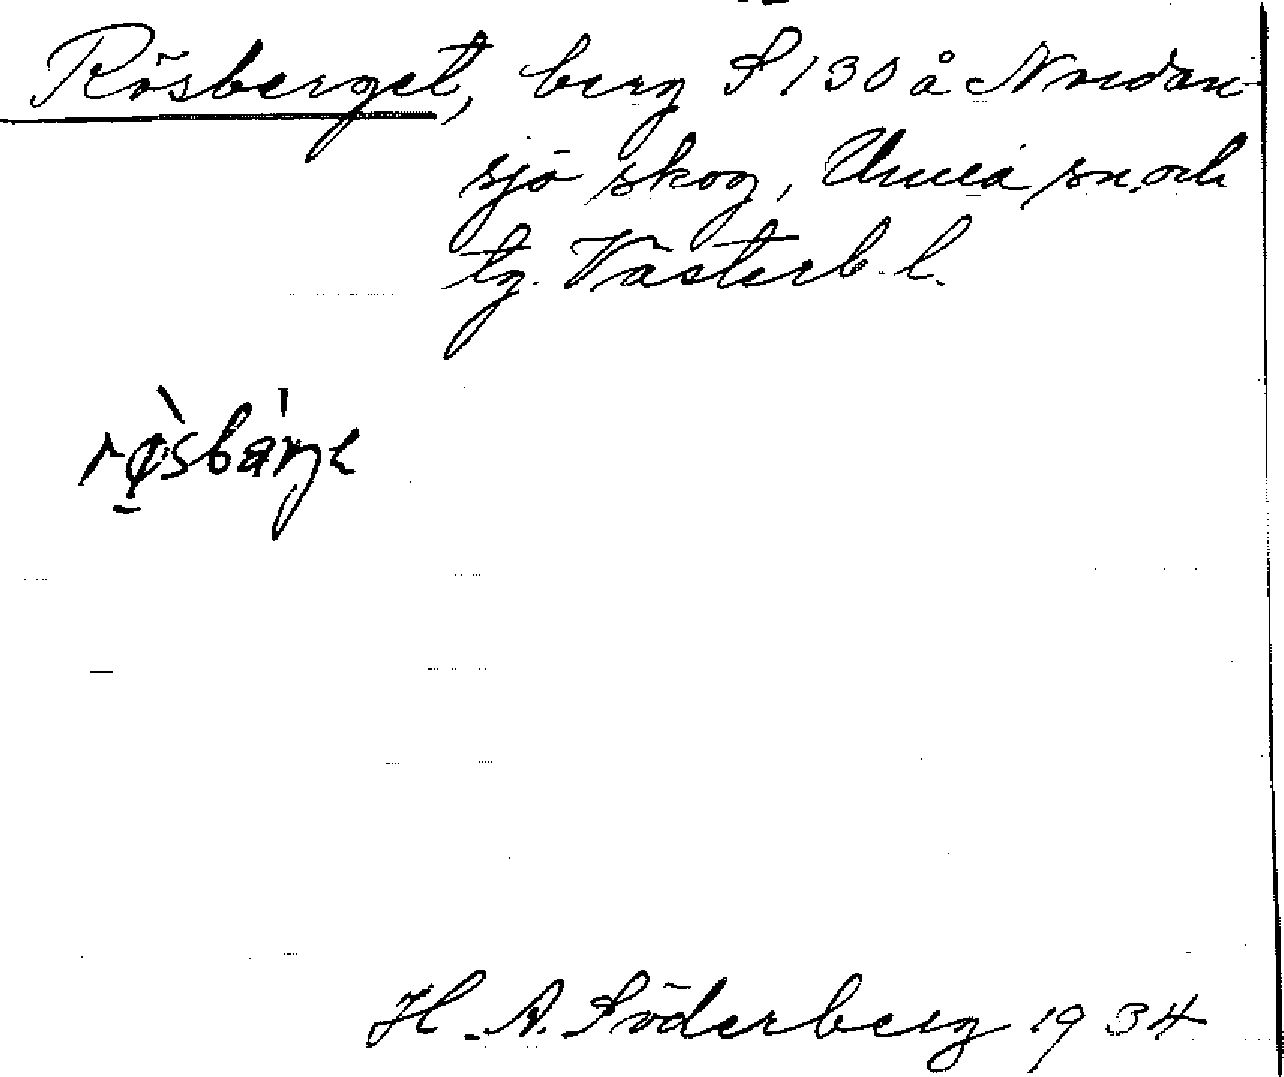 Rösberget, berg S 130 å Nordan-
sjö skog, Umeå sn och
tg. Västerb. l.
røsbärje
H. A. Söderberg 1934